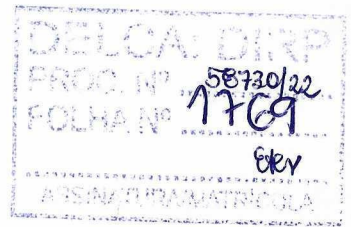 DELCA: DIRP
PROC. Nº 58730/22
FOLHA Nº 1769
ASSINATURA/MATRÍCULA